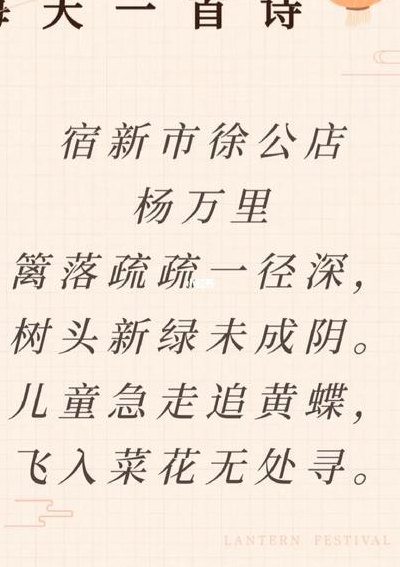 每天一首诗
宿新市徐公店
杨万里
篱落疏疏一径深，
树头新绿未成阴。
儿童急走追黄蝶，
飞入菜花无处寻。
LANTERN FESTIVAL